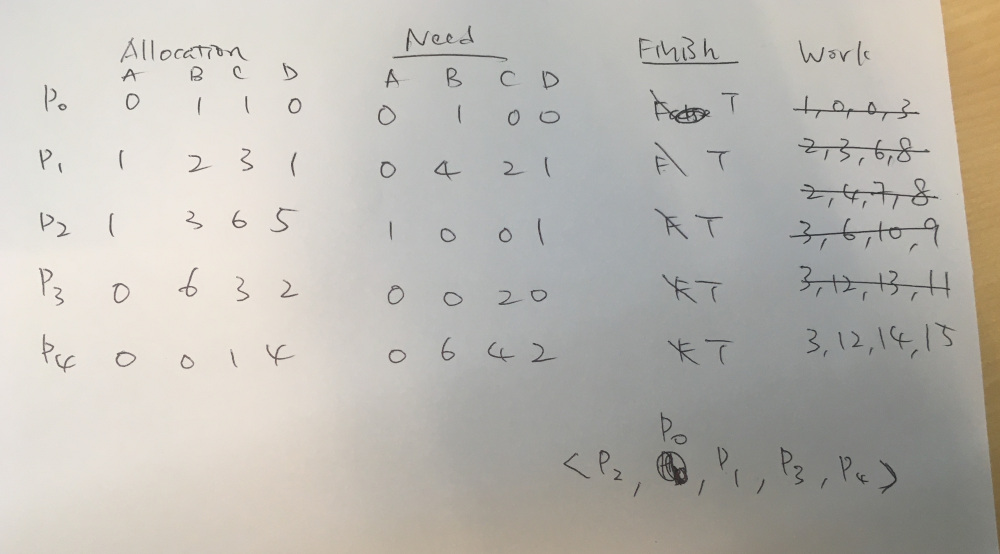 Allocation Need Finish Work
A B C D A B C D
P0 0 1 1 0 0 1 0 0 T 1, 0, 0, 3
P1 1 2 3 1 0 4 2 1 F T 2, 3, 6, 8
2, 4, 7, 8
P2 1 3 6 5 1 0 0 1 F T 3, 6, 10, 9
P3 0 6 3 2 0 0 2 0 F T 3, 12, 13, 11
P4 0 0 1 4 0 6 4 2 F T 3, 12, 14, 15
P0
<P2, , P1, P3, P4>